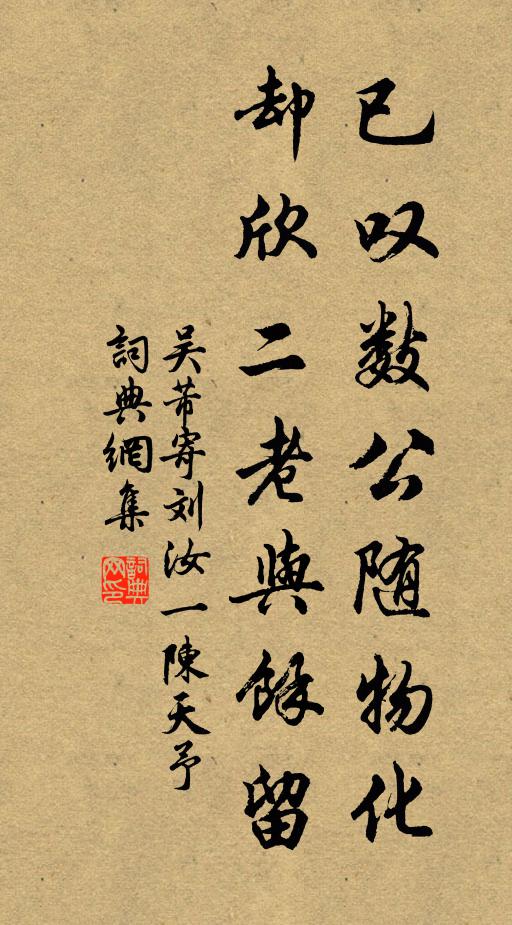 已叹数公随物化
却欣二老與馀留
吴芾寄刘汝一陳天予
詞典網集
詞典網印